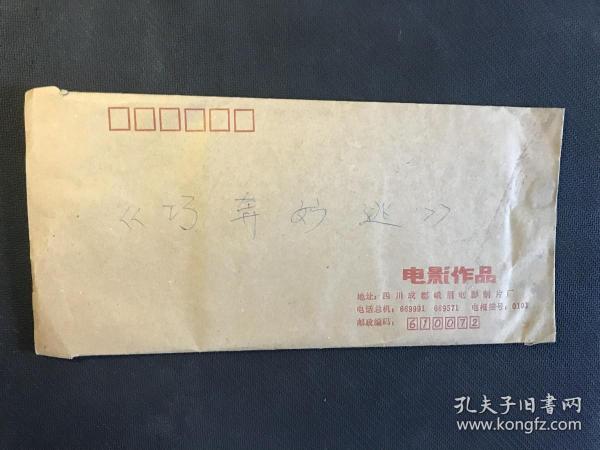 《巧奔妙逃》
电影作品
地址：四川成都峨眉电影制片厂
电话总机：669991 669571 电报挂号：0103
邮政编码：610072
孔夫子旧书网
www.kongfz.com